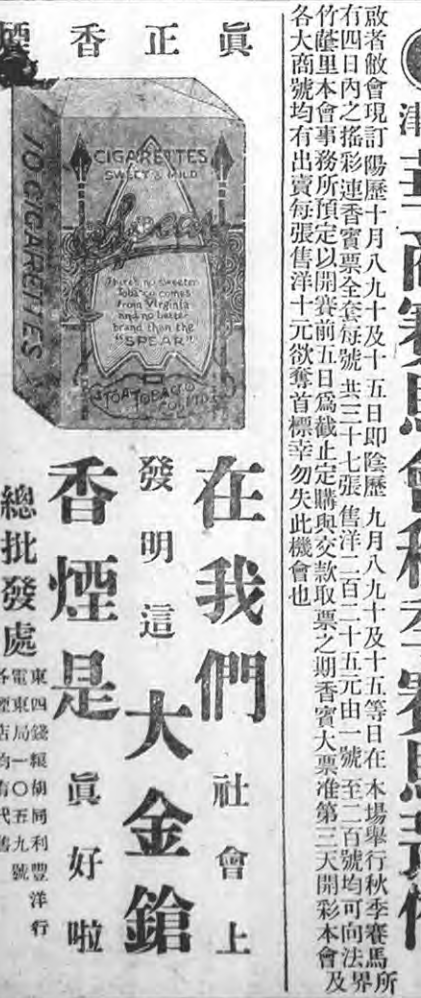 津華商賽馬會秋季賽馬
啟者敝會現訂陽歷十月八九十及十五日即陰歷九月八九十及十五等日在本場舉行秋季賽馬所
有四日內之搖彩連香賓票全套每號共三十七張售洋二百二十五元由一號至二百號均可向法界
竹蔭里本會事務所預定以開賽前五日爲截止定購與交款取票之期香賓大票准第三天開彩本會及
各大商號均有出賣每張售洋十元欲奪首標幸勿失此機會也
眞正香煙
CIGARETTES
SWEET & MILD
Spear
There's no sweeter
Tobacco comes
from Virginia
and no better
brand than the
"SPEAR"
TOBACCO
10 CIGARETTES
在我們社會上
發明這大金鎗
香煙是眞好啦
總批發處
東四錢糧胡同利豐洋行
電東局一〇五九號
各煙店均有代售